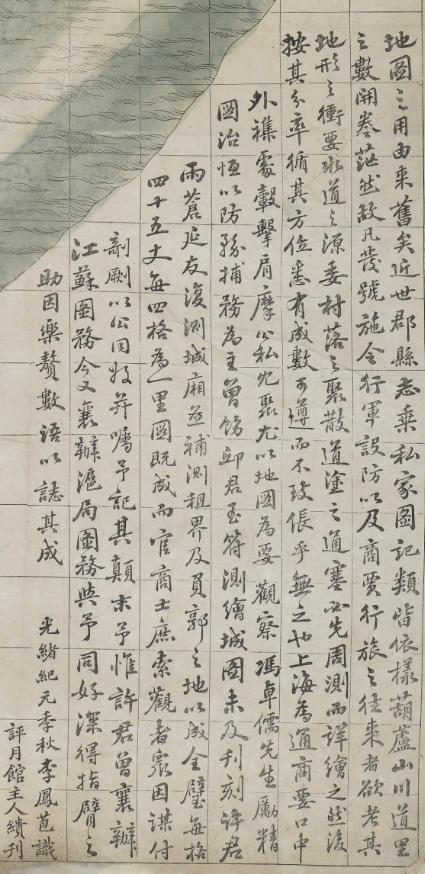 地圖之用由來舊矣近世郡縣志乘私家圖記類皆依樣葫蘆山川道里
之數開卷茫然故凡發號施令行軍設防以及商賈行旅之往來者欲考其
地形之衝要水道之源委村落之聚散道塗之通塞必先周測而詳繪之然後
按其分率循其方位悉有成數可遵而不致倀乎無之也上海為通商要口中
外襍處轂擊肩摩公私兜聚尤以地圖為要觀察馮卓儒先生勵精
國治恆以防務捕務為主曾飭邱君玉符測繪城圖未及刊刻許君
雨蒼延友復測城廂並補測租界及負郭之地以成全璧每格
四十五丈每四格為一里圖既成而官商士庶索觀者眾因謀付
剞劂以公同好并囑予記其顛末予惟許君曾襄辦
江蘇圖務今又襄辦滬局圖務與予同好深得指臂之
助因樂贅數語以誌其成
光緒紀元季秋李鳳苞識
評月館主人續刊